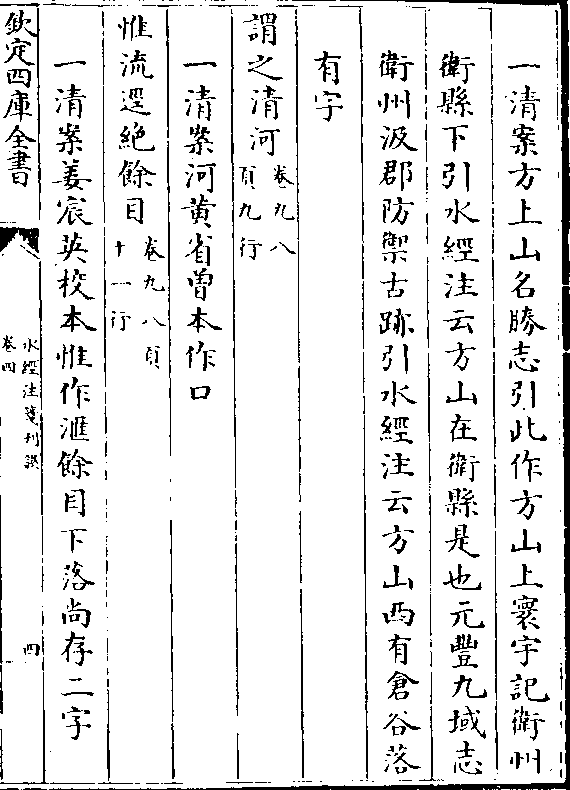 一清案方上山名勝志引此作方山上寰宇記衛州
衛縣下引水經注云方山在衛縣是也元豐九域志
衛州汲郡防禦古跡引水經注云方山西有倉谷落
有字
謂之清河卷九八
頁九行
一清案河黄省曾本作口
惟流逕絶餘目卷九八頁
十一行
一清案姜宸英校本惟作滙餘目下落尚存二字
欽定四庫全書
水經注箋刊誤
卷四
四